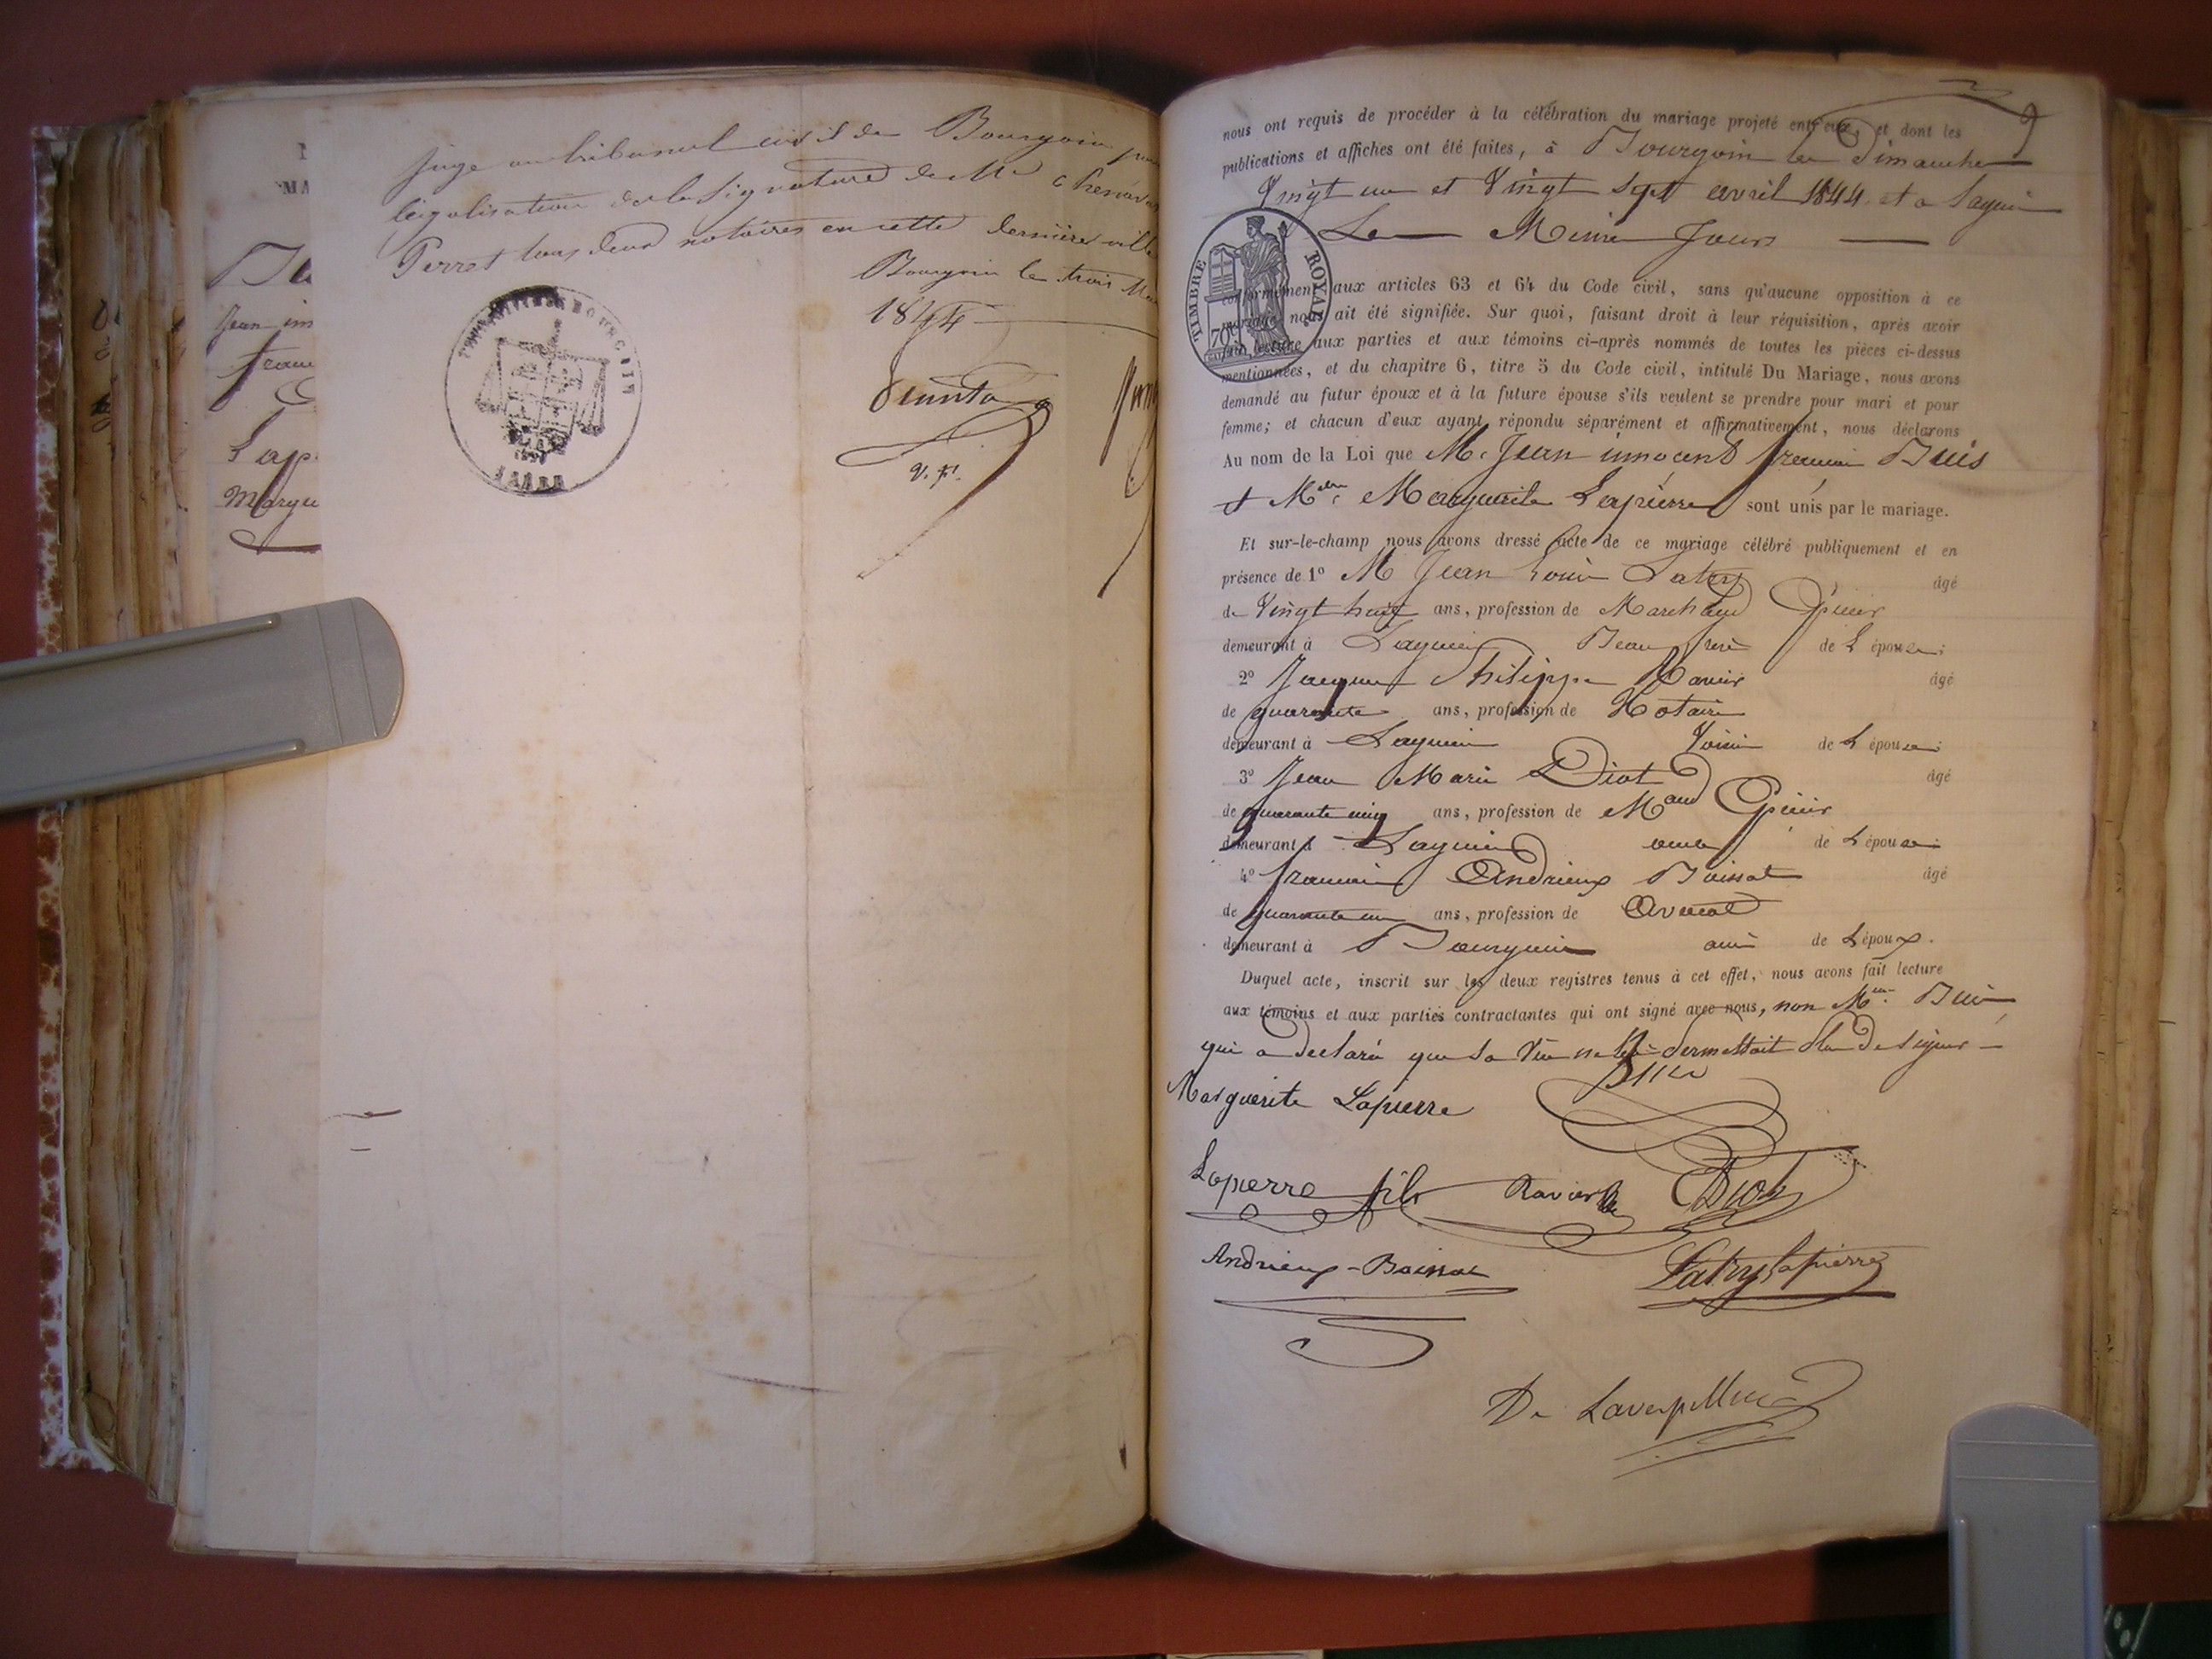 MA
Jean inn
Lap
Margue
juge au tribunal civil de Bourgoin pour
légalisation de la signature de Me
Perret tous deux notaires en cette dernière ville
Bourgoin le trois Mai
1844
v. p.
nous ont requis de procéder à la célébration du mariage projeté entr'eux, et dont les
publications et affiches ont été faites, à Bourgoin les Dimanches
Vingt un et Vingt sept avril 1844 et a Lagnieu
Le Meme Jours
TIMBRE ROYAL
70c
conformément aux articles 63 et 64 du Code civil, sans qu'aucune opposition à ce
mariage nous ait été signifiée. Sur quoi, faisant droit à leur réquisition, après avoir
fait lecture aux parties et aux témoins ci-après nommés de toutes les pièces ci-dessus
mentionnées, et du chapitre 6, titre 5 du Code civil, intitulé Du Mariage, nous avons
demandé au futur époux et à la future épouse s'ils veulent se prendre pour mari et pour
femme; et chacun d'eux ayant répondu séparément et affirmativement, nous déclarons
Au nom de la Loi que Mr Jean innocent francois Buis
et Mlle Marguerite Lapierre sont unis par le mariage.
Et sur-le-champ nous avons dressé acte de ce mariage célébré publiquement et en
présence de 1º M Jean Louis Latry âgé
de Vingt huit ans, profession de Marchand Epicier
demeurant à Lagnieu Beau frere de L épouse;
2º Jacques Philippe Ravier âgé
de quarante ans, profession de Notaire
demeurant à Lagnieu Voisin de L épouse;
3º Jean Marie Diot âgé
de quarante cinq ans, profession de Mand Epicier
demeurant à Lagnieu de L épouse;
4º francois Andrieux Boissat âgé
de quarante un ans, profession de Avocat
demeurant à Bourgoin ami de L époux.
Duquel acte, inscrit sur les deux registres tenus à cet effet, nous avons fait lecture
aux témoins et aux parties contractantes qui ont signé avec nous, non Mme Buis
qui a declaré que sa Vue ne lui permettait plus de signer
Buis
Marguerite Lapierre
Lapierre fils Ravier Diot
Andrieux-Boissat Latry Lapierre